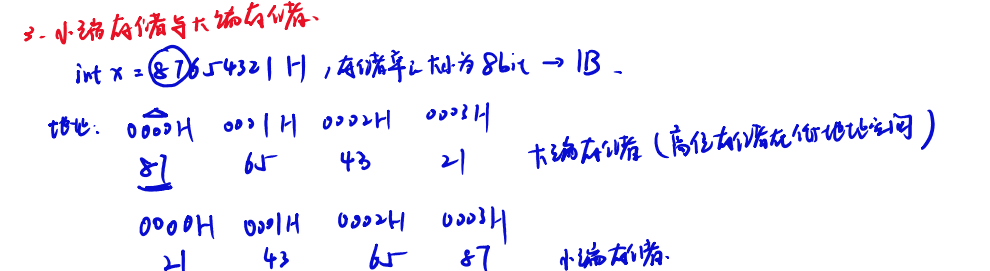 3. 小端存储与大端存储、
int x = 87654321H，存储单元大小为8bit → 1B.
地址: 0000H 0001H 0002H 0003H
87 65 43 21 大端存储（高位存储在低地址空间）
0000H 0001H 0002H 0003H
21 43 65 87 小端存储.